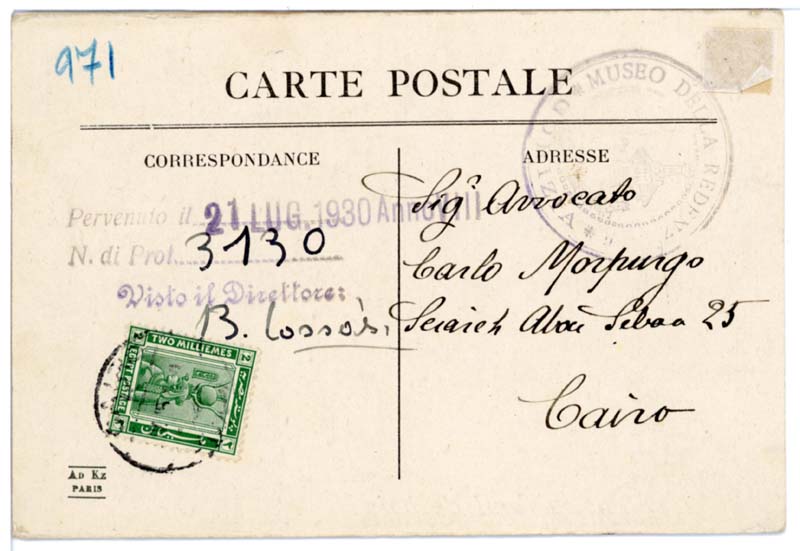 971
CARTE POSTALE
MUSEO DELLA REDENZ
CORRESPONDANCE
ADRESSE
Pervenuto il 21 LUG. 1930 Anno VIII
N. di Prot. 3130
Visto il Direttore:
B.
Sigr Avvocato
Carlo Morpurgo
Sciaieh Abou Sebaa 25
Cairo
TWO MILLIEMES
EGYPT POSTAGE
2
2
٢
AD KZ
PARIS